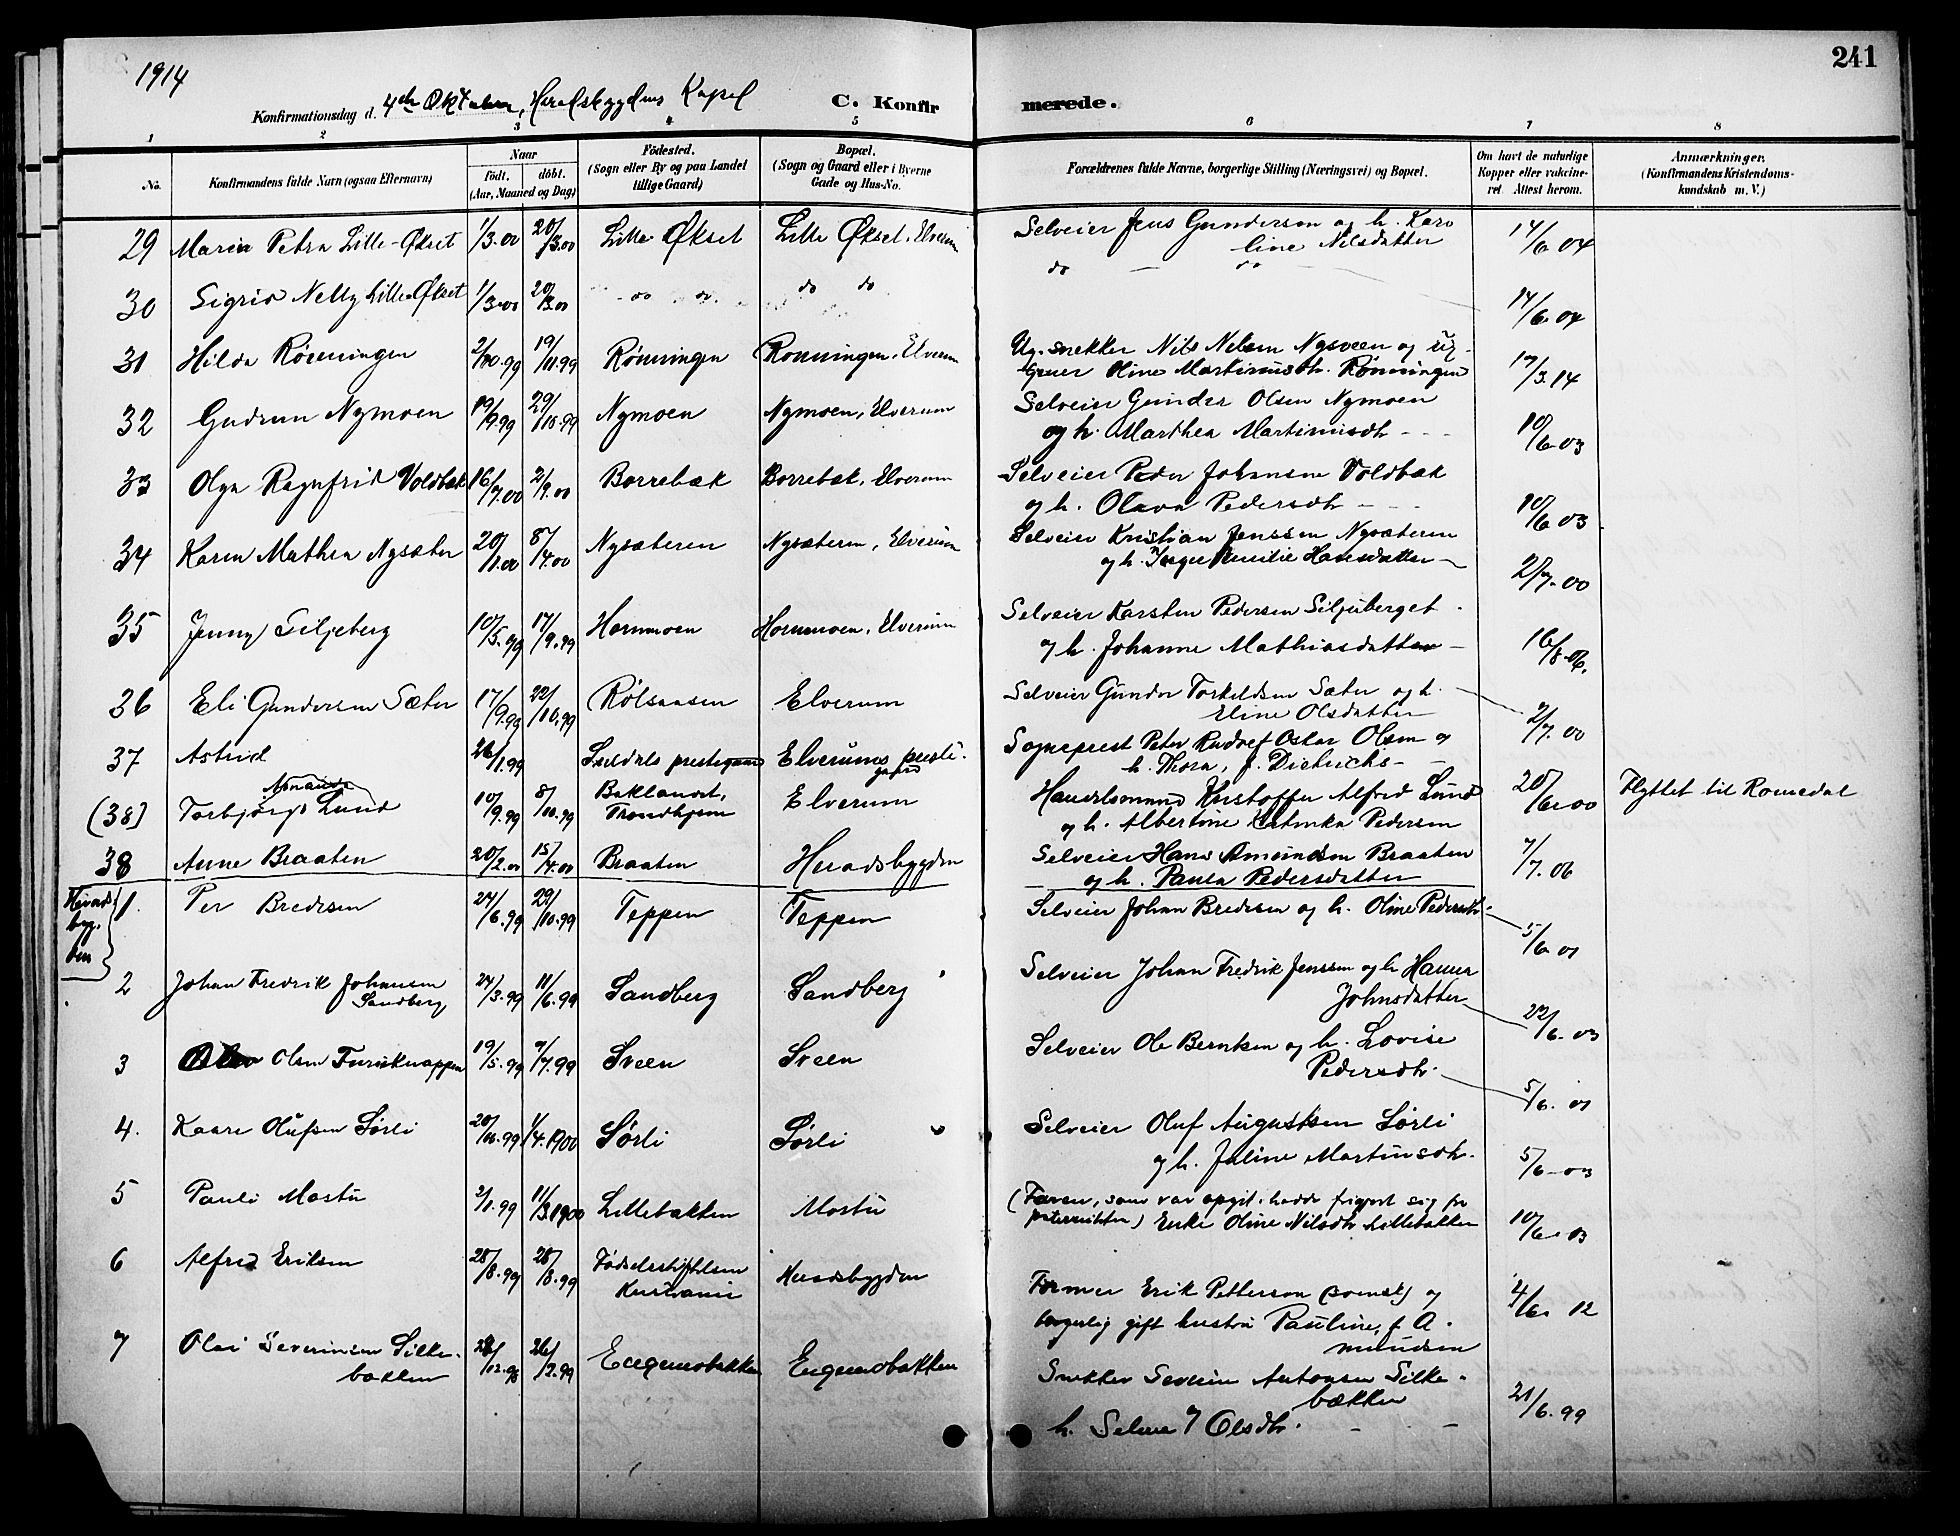 1914
241
Konfirmationsdag d. 4de Oktober, Heradsbygdens Kapel
C. Konfirmerede.
1 2 3 4 5 6 7 8
No.
Konfirmandens fulde Navn (ogsaa Efternavn)
Naar
födt. döbt.
(Aar, Maaned og Dag)
Födested.
(Sogn eller By og paa Landet
tillige Gaard)
Bopæl.
(Sogn og Gaard eller i Byerne
Gade og Hus-No.
Forældrenes fulde Navne, borgerlige Stilling (Næringsvei) og Bopæl.
Om havt de naturlige
Kopper eller vakcine-
ret Attest herom.
Anmærkninger.
(Konfirmandens Kristendoms-
kundskab m. V.)
29 Maria Petra Lille-Økset 1/3.00 20/3.00 Lille Økset Lille Økset, Elverum Selveier Jens Gundersen og h. Karo
line Nilsdatter 14/6 04
30 Sigrid Nelly Lille-Økset 1/3.00 20/3.00 do do do do do — do 14/6.04
31 Hilda Rönningen 2/10.99 19/11.99 Rönningen Rönningen, Elverum Ug. snekker Nils Nilsen Nysveen og ug.
Oline Martinusdtr. Rönningen 17/3.14
32 Gudrun Nymoen 19/9.99 29/10.99 Nymoen Nymoen, Elverum Selveier Gunder Olsen Nymoen
og h. Marthea Martinusdtr - - - 10/6 03
33 Olga Ragnfrid Voldbæk 16/7.00 2/9.00 Borrebæk Borrebæk, Elverum Selveier Peder Johansen Voldbæk
og h. Olava Pedersdtr - - - 10/6 03
34 Karen Mathea Nysæter 20/1.00 8/4.00 Nysæteren Nysæteren, Elverum Selveier Kristian Jenssen Nysæteren
og h. Inger Emilie Hansdatter — 2/7.00
35 Jenny Siljeberg 10/5.99 17/9.99 Hornmoen Hornmoen, Elverum Selveier Karsten Pedersen Siljuberget
og h. Johanne Mathiasdatter — 16/8.06.
36 Eli Gundersen Sæter 17/9.99 22/10.99 Rölsaasen Elverum Selveier Gunder Torkeldsen Sæter og h.
Eline Olsdatter 2/7.00
37 Astrid 26/1.99 prestegaard Elverums preste-
gaard Sogneprest Peter Oskar Olsen og
h. Thora, f. Dietrichs —
(38) Torbjörg Lund 10/9.99 8/10.99 Baklandet,
Trondhjem Elverum Handelsmand Kristoffer Alfred Lund
og h. Albertine Katinka Pedersen 20/6.00 Flyttet til Romedal
38 Anne Braaten 20/2.00 15/4.00 Braaten Heradsbygden Selveier Hans Amundsen Braaten
og h. Paula Pedersdatter 7/7.06
Herads-
byg-
den
1. Per Bredesen 24/6.99 29/10.99 Teppen Teppen Selveier Johan Bredesen og h. Oline Pedersdtr. 5/6 01
2 Johan Fredrik Johansen
Sandberg 24/3.99 11/6.99 Sandberg Sandberg Selveier Johan Fredrik Jenssen og h. Hanna
Johnsdatter 22/6.03
3 Olsen Furuknappen 19/5.99 9/7.99 Sveen Sveen Selveier Ole Berntsen og h. Lovise
Pedersdtr. 5/6.01
4. Kaare Olufsen Sörli 20/10.99 1/4.1900 Sörli Sörli Selveier Oluf Augustsen Sörli
og h. Juline Martinsdtr. 5/6-03
5 Pauli Mostu 2/1.99 11/3.1900 Lillebakken Mostu (Faren, som var opgit, hadde frigjort sig fra
paterniteten) Enke Oline Nilsdtr Lillebakken 10/6.03
6 Alfred Eriksen 28/8.99 28/8.99 Födselsstiftelsen
Kristiania Heradsbygden Former Erik Petterson (svensk) og
borgerlig gift hustru Pauline, f. A-
mundsen 4/6. 12
7 Olai Severinsen Silke-
bækken 28/12.98 26/2.99 Engenesbakken Engenesbakken Snekker Severin Antonsen Silke-
bækken
og h. Selma Olsdtr. — — 21/6.99